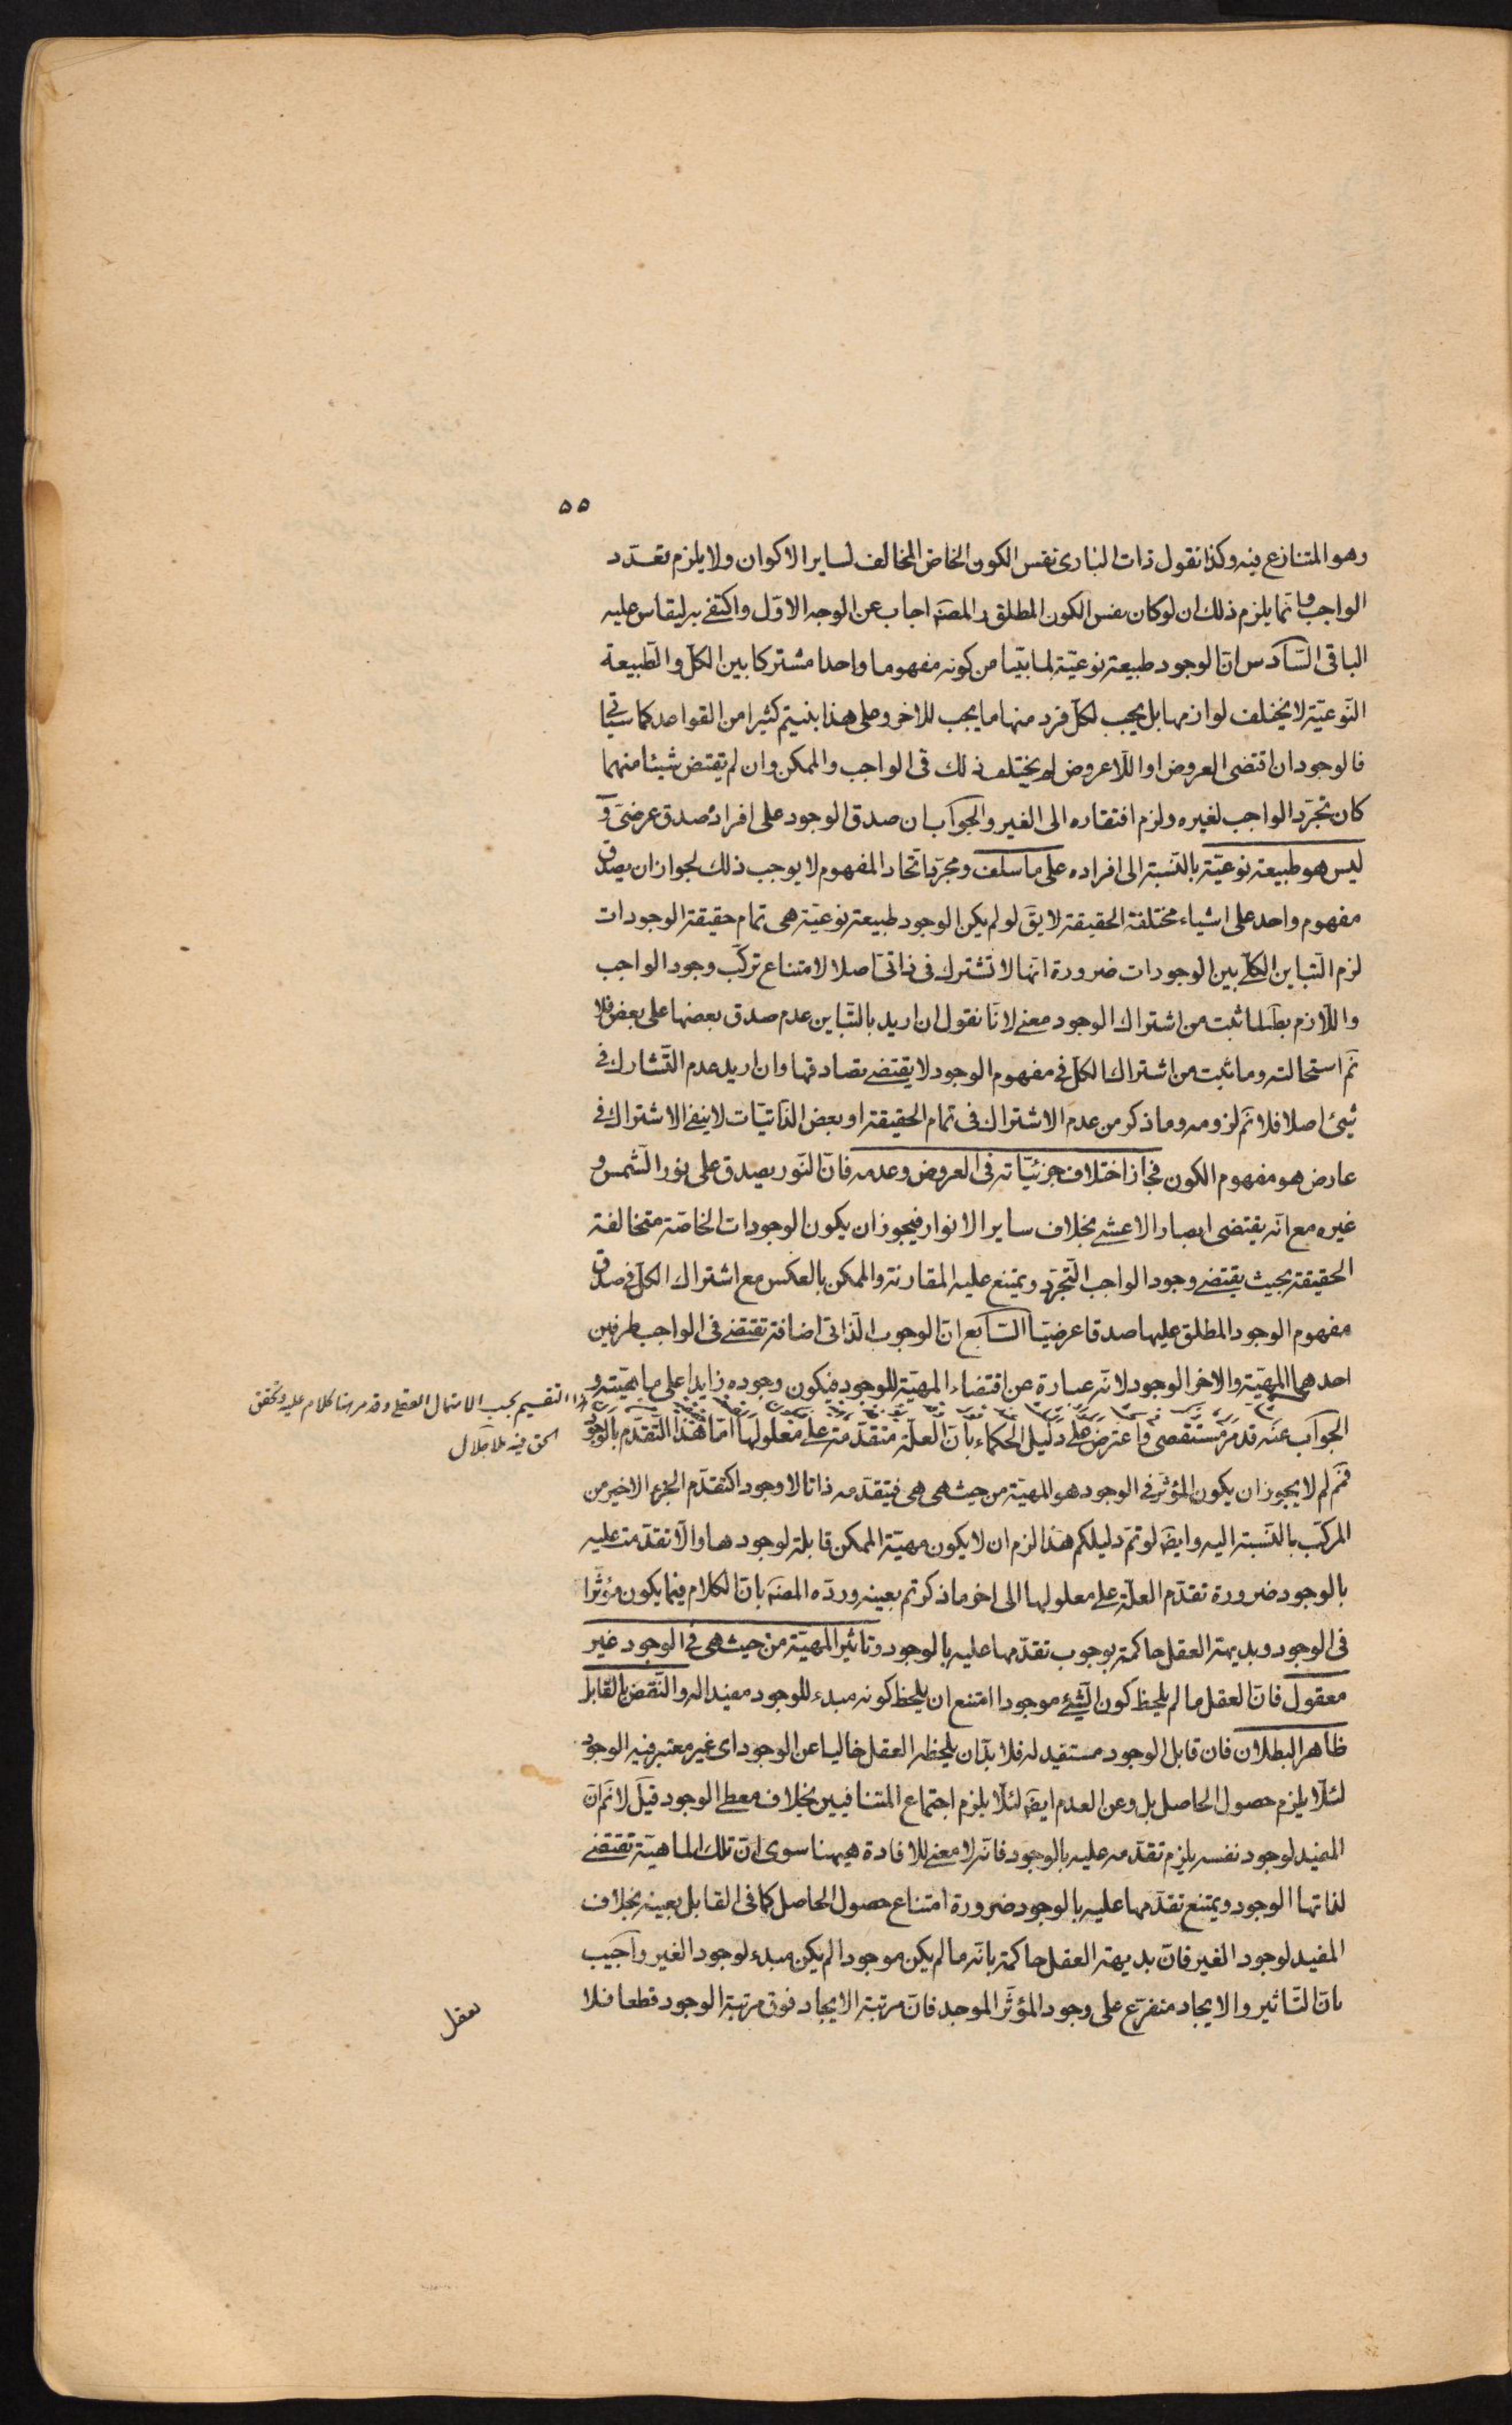 ٥٥
وهو المتنازع فيه وكذا نقول ذات البارى نفس الكون الخاص المخالف لساير الاكوان ولا يلزم تعدّد
الواجب وانما يلزم ذلك ان لو كان نفس الكون المطلق والمصنّه اجاب عن الوجه الاوّل واكتفى به ليقاس عليه
الباقى السّادس انّ الوجود طبيعة نوعيّة لما بيّنا من كونه مفهوما واحدا مشتركا بين الكلّ والطّبيعة
النّوعيّة لا يختلف لوازمها بل يجب لكلّ فرد منها ما يجب للاخر وعلى هذا بنيتم كثيرا من القواعد كما سيأتى
فالوجود ان اقتضى العروض او اللاعروض لم يختلف ذلك فى الواجب والممكن وان لم يقتض شيئا منهما
كان تجرّد الواجب لغيره ولزم افتقاره الى الغير والجواب ان صدق الوجود على افراده صدق عرضىّ و
ليس هو طبيعة نوعيّة بالنّسبة الى افراده على ما سلف ومجرّد اتّحاد المفهوم لا يوجب ذلك لجواز ان يصدق
مفهوم واحد على اشياء مختلفة الحقيقة لا يقَ لو لم يكن الوجود طبيعة نوعيّة هى تمام حقيقة الوجودات
لزم التّباين الكلّى بين الوجودات ضرورة انّها لا تشترك فى ذاتىّ اصلا لامتناع تركّب وجود الواجب
واللّازم بطَ لما ثبت من اشتراك الوجود معنى لانّا نقول ان اريد بالتّباين عدم صدق بعضها على بعض فلا
نمَ استحالته وما ثبت من اشتراك الكلّ فى مفهوم الوجود لا يقتضى تصادقها وان اريد عدم التّشارك فى
شئ اصلا فلا نمَ لزومه وما ذكر من عدم الاشتراك فى تمام الحقيقة او بعض الذّاتيّات لا ينفى الاشتراك فى
عارض هو مفهوم الكون فجاز اختلاف جزئيّاته فى العروض وعدمه فانّ النّور يصدق على نور الشّمس و
غيره مع انّه يقتضى ابصار الاعشى بخلاف ساير الانوار فيجوز ان يكون الوجودات الخاصّة متخالفة
الحقيقة بحيث يقتضى وجود الواجب التّجرّد ويمتنع عليه المقارنة والممكن بالعكس مع اشتراك الكلّ فى صدق
مفهوم الوجود المطلق عليها صدقا عرضيّا السّابع انّ الوجوب الذّاتى اضافة تقتضى فى الواجب طرفين
احدهما المهيّة والاخر الوجود لانّه عبارة عن اقتضاء المهيّة للوجود فيكون وجوده زايدا على ماهيّته و
الجواب عنه قد مرّ مستقصى واعترض على دليل الحكماء بانّ العلّة متقدّمة على معلولها امّا هذا التّقدّم بالوجود
فمَ لم لا يجوز ان يكون المؤثّر فى الوجود هو المهيّة من حيث هى هى فيتقدّمه ذاتا لا وجودا كتقدّم الجزء الاخير من
المركّب بالنّسبة اليه وايضَ لو تمّ دليلكم هذا لزم ان لا يكون مهيّة الممكن قابلة لوجودها والّا تقدّمت عليه
بالوجود ضرورة تقدّم العلّة على معلولها الى اخر ما ذكرتم بعينه وردّه المصنّه بانّ الكلام فيما يكون مؤثّرا
فى الوجود وبديهة العقل حاكمة بوجوب تقدّمها عليه بالوجود وتاثير المهيّة من حيث هى فى الوجود غير
معقول فانّ العقل ما لم يلحظ كون الشّئ موجودا امتنع ان يلحظ كونه مبدء للوجود مفيدا له والنّقض بالقابل
ظاهر البطلان فان قابل الوجود مستفيد له فلا بدّ ان يلحظه العقل خاليا عن الوجود اى غير معتبر فيه الوجود
لئلّا يلزم حصول الحاصل بل وعن العدم ايضَ لئلّا يلزم اجتماع المتنافيين بخلاف معطى الوجود قيل لا نمَ انّ
المفيد لوجود نفسه يلزم تقدّمه عليه بالوجود فانّه لا معنى للافادة هيهنا سوى انّ تلك الماهيّة تقتضى
لذاتها الوجود ويمتنع تقدّمها عليه بالوجود ضرورة امتناع حصول الحاصل كما فى القابل بعينه بخلاف
المفيد لوجود الغير فانّ بديهة العقل حاكمة بانّه ما لم يكن موجودا لم يكن مبدء لوجود الغير واجيب
بانّ التّاثير والايجاد متفرّع على وجود المؤثّر الموجد فانّ مرتبة الايجاد فوق مرتبة الوجود قطعا فلا
تعقل
التقسيم بحسب الاحتمال العقلى وقد مر منا كلام عليه وتحقق
الحق فيه